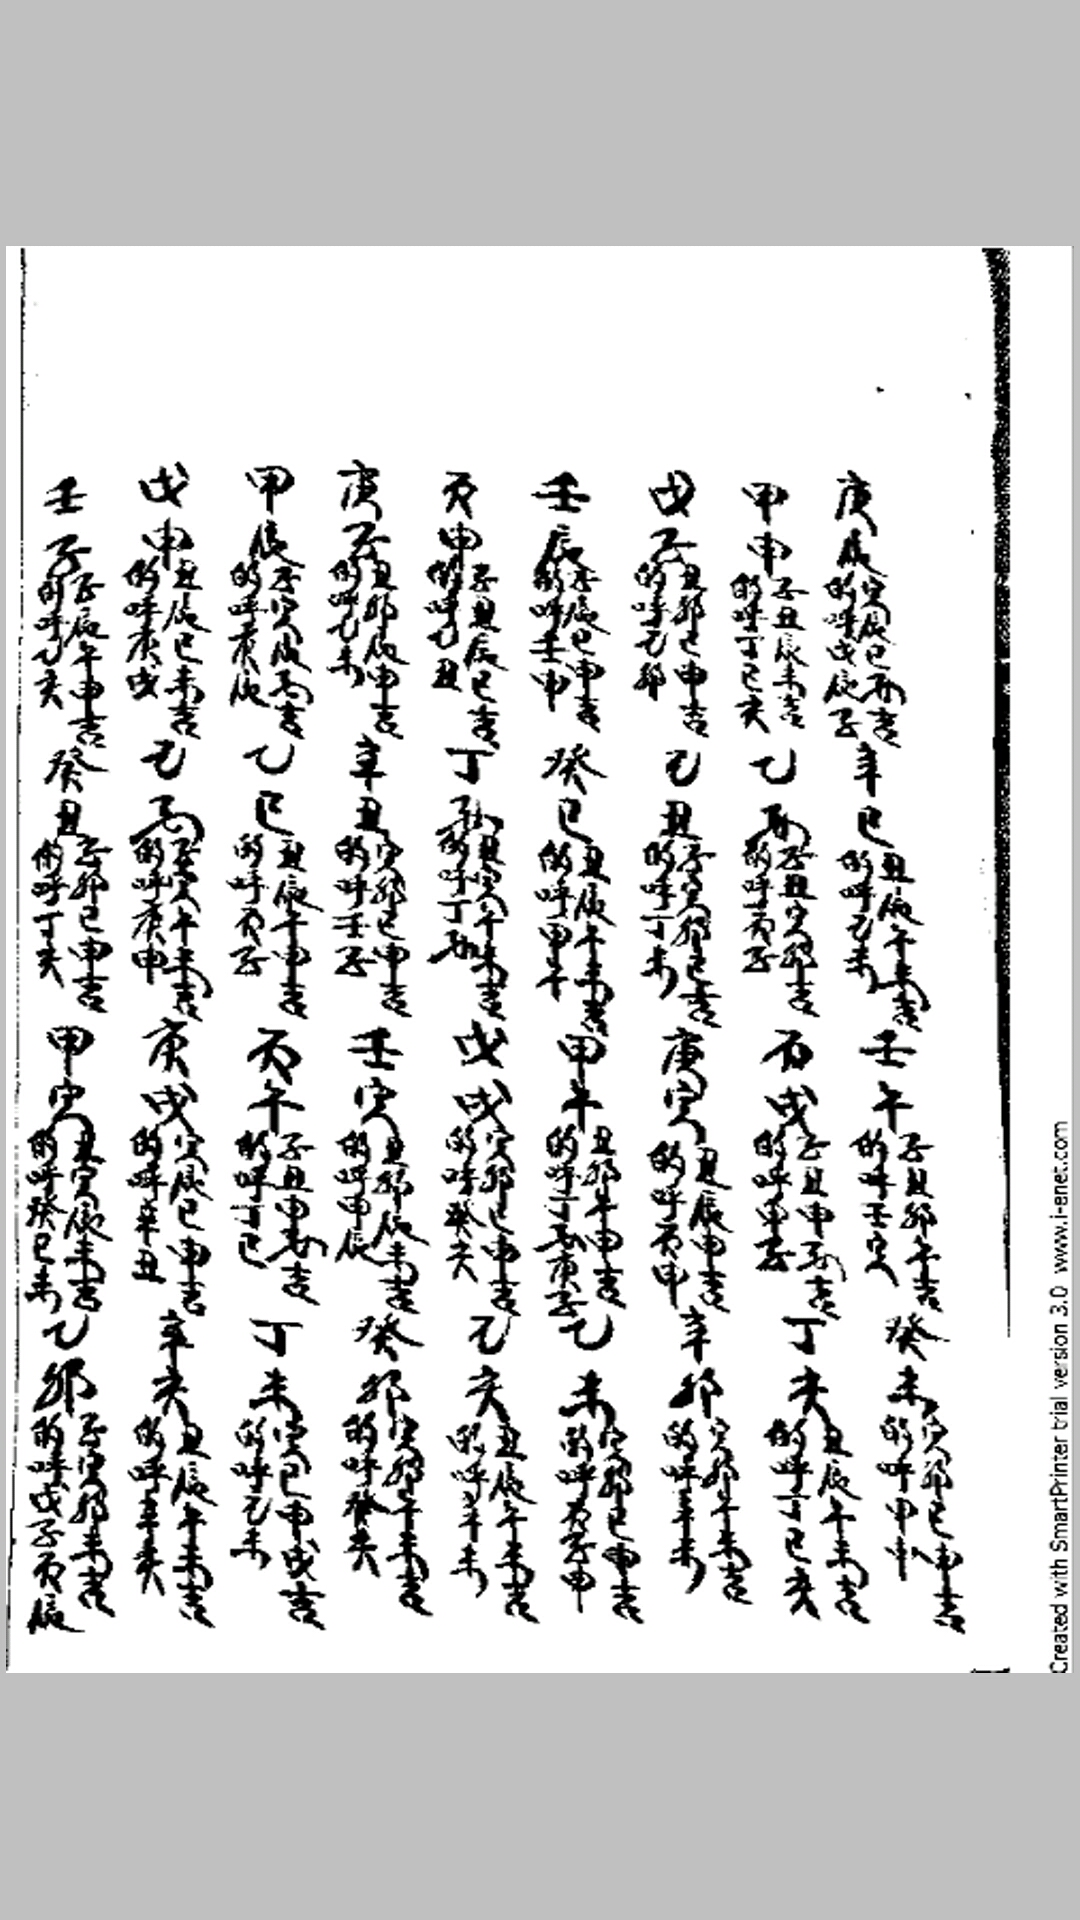 庚辰 寅辰巳酉吉 的呼戊辰子 辛巳 丑辰午未吉 的呼乙未 壬午 子丑卯午吉 的呼壬寅 癸未 寅卯巳申吉 的呼甲申
甲申 子丑辰未吉 的呼丁巳亥 乙酉 子丑寅卯吉 的呼丙子 丙戌 子丑申酉吉 的呼甲子 丁亥 丑辰午未吉 的呼丁巳亥
戊子 丑卯巳申吉 的呼乙卯 己丑 子寅卯巳吉 的呼丁未 庚寅 丑辰申吉 的呼丙申 辛卯 寅卯午未吉 的呼辛未
壬辰 子辰巳申吉 的呼壬申 癸巳 丑辰午未吉 的呼甲午 甲午 丑卯午申吉 的呼丁酉庚子 乙未 寅卯巳申吉 的呼丙子申
丙申 子丑辰巳吉 的呼乙丑 丁酉 丑寅午未吉 的呼丁酉 戊戌 寅卯巳申吉 的呼癸亥 己亥 丑辰午未吉 的呼辛未
庚子 丑卯辰申吉 的呼乙未 辛丑 寅卯巳申吉 的呼壬子 壬寅 丑卯辰未吉 的呼甲辰 癸卯 寅卯午未吉 的呼癸亥
甲辰 子寅辰酉吉 的呼庚辰 乙巳 丑辰午申吉 的呼丙子 丙午 子丑申酉吉 的呼丁巳 丁未 寅巳申戌吉 的呼乙未
戊申 丑辰巳未吉 的呼庚戌 己酉 子寅午未吉 的呼庚申 庚戌 寅辰巳申吉 的呼辛丑 辛亥 丑辰午未吉 的呼辛亥
壬子 子辰午申吉 的呼乙亥 癸丑 子卯巳申吉 的呼丁亥 甲寅 丑寅辰未吉 的呼癸巳未 乙卯 子寅卯未吉 的呼戊子丙辰
Created with SmartPrinter trial version 3.0 www.i-enet.com